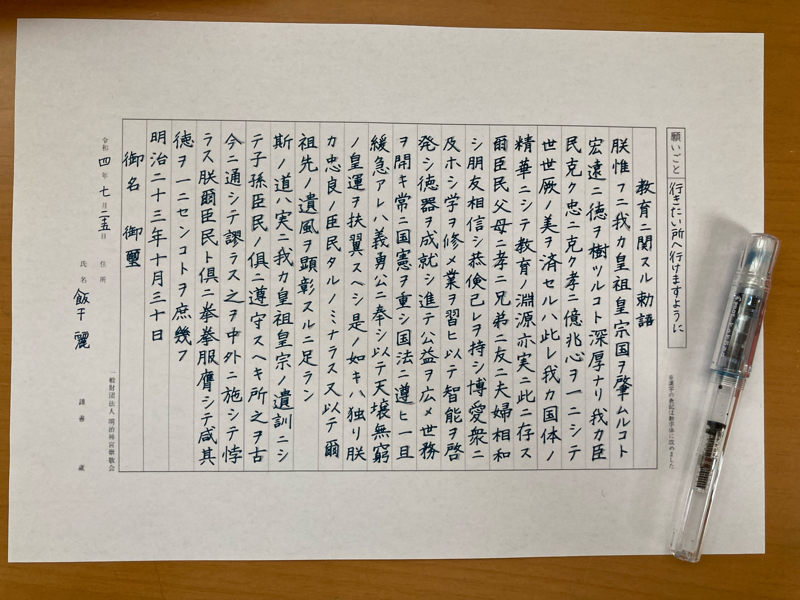 願いごと 行きたい所へ行けますように
※漢字の表記は新字体に改めました
教育ニ関スル勅語
朕惟フニ我カ皇祖皇宗国ヲ肇ムルコト
宏遠ニ徳ヲ樹ツルコト深厚ナリ我カ臣
民克ク忠ニ克ク孝ニ億兆心ヲ一ニシテ
世世厥ノ美ヲ済セルハ此レ我カ国体ノ
精華ニシテ教育ノ淵源亦実ニ此ニ存ス
爾臣民父母ニ孝ニ兄弟ニ友ニ夫婦相和
シ朋友相信シ恭倹己レヲ持シ博愛衆ニ
及ホシ学ヲ修メ業ヲ習ヒ以テ智能ヲ啓
発シ徳器ヲ成就シ進テ公益ヲ広メ世務
ヲ開キ常ニ国憲ヲ重シ国法ニ遵ヒ一旦
緩急アレハ義勇公ニ奉シ以テ天壌無窮
ノ皇運ヲ扶翼スヘシ是ノ如キハ独リ朕
カ忠良ノ臣民タルノミナラス又以テ爾
祖先ノ遺風ヲ顕彰スルニ足ラン
斯ノ道ハ実ニ我カ皇祖皇宗ノ遺訓ニシ
テ子孫臣民ノ俱ニ遵守スヘキ所之ヲ古
今ニ通シテ謬ラス之ヲ中外ニ施シテ悖
ラス朕爾臣民ト俱ニ拳拳服膺シテ咸其
徳ヲ一ニセンコトヲ庶幾フ
明治二十三年十月三十日
御名 御璽
令和 四 年 七 月 二五 日
住所
氏名 飯干 麗
謹書 歳
一般財団法人 明治神宮崇敬会